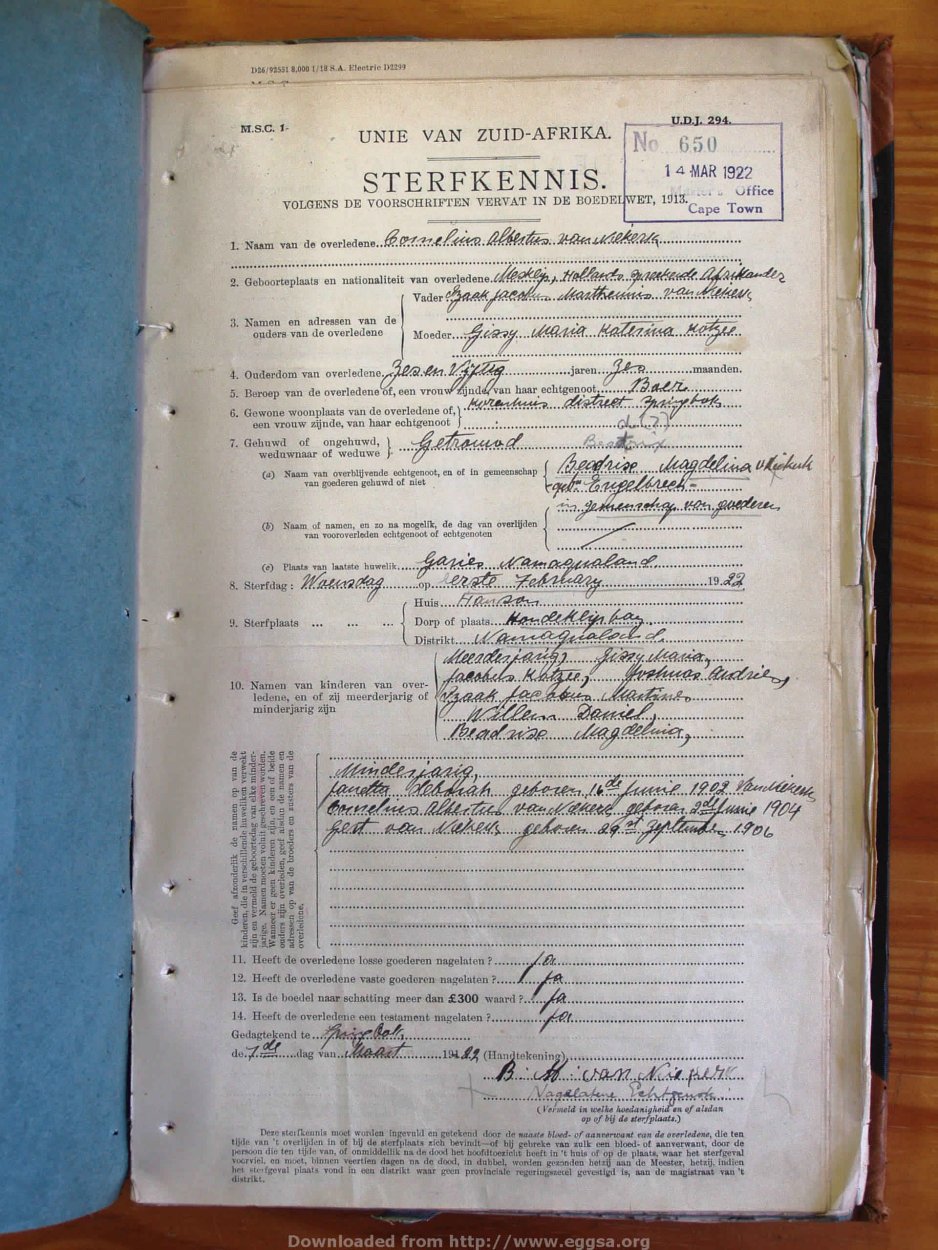 D26/92531 8,000 1/18 S.A. Electric D2299
M.S.C. 1-
U.D.J. 294.
UNIE VAN ZUID-AFRIKA.
No 650
14 MAR 1922
Master's Office
Cape Town
STERFKENNIS.
VOLGENS DE VOORSCHRIFTEN VERVAT IN DE BOEDELWET, 1913.
1. Naam van de overledene Cornelius Albertus van Niekerk
2. Geboorteplaats en nationaliteit van overledene Hollands sprekende Afrikander
3. Namen en adressen van de ouders van de overledene
Vader Izaak Jacobus Marthinus van Niekerk
Moeder Gissy Maria Katerina Kotzee
4. Ouderdom van overledene Zes en Vijftig jaren Zes maanden.
5. Beroep van de overledene of, een vrouw zijnde, van haar echtgenoot Boer
6. Gewone woonplaats van de overledene of, een vrouw zijnde, van haar echtgenoot distrect Springbok
d (?)
7. Gehuwd of ongehuwd, weduwnaar of weduwe Getrouwd
(a) Naam van overblijvende echtgenoot, en of in gemeenschap van goederen gehuwd of niet
Beadrise Magdelina v Niekerk
geb. Engelbrech
in gemeenschap van goederen
(b) Naam of namen, en zo na mogelik, de dag van overlijden van vooroverleden echtgenoot of echtgenoten
(c) Plaats van laatste huwelik Garies Namaqualand
8. Sterfdag: Woensdag op eerste February 1922
9. Sterfplaats ... ... ...
Huis Hanson
Dorp of plaats Hondeklip bay
Distrikt Namaqualand
10. Namen van kinderen van overledene, en of zij meerderjarig of minderjarig zijn
Meerderjarig, Gissy Maria,
Jacobus Kotzee, Joshuas Andries,
Izaak Jacobus Martinus
Willem Daniel,
Beadrise Magdelina,
Geef afzonderlik de namen op van de kinderen, die in verschillende huweliken verwekt zijn en vermeld de geboortedag van elke minderjarige. Namen moeten voluit geschreven worden. Wanneer er geen kinderen zijn, en een of beide ouders zijn overleden, geef alsdan de namen en adressen op van de broeders en zusters van de overledene.
Minderjarig,
Janetta Deborah geboren 16de Junie 1902 Van Niekerk
Cornelius Albertus van Niekerk geboren 2de Junie 1904
Gert van Niekerk geboren 29st September 1906
11. Heeft de overledene losse goederen nagelaten? Ja
12. Heeft de overledene vaste goederen nagelaten? Ja
13. Is de boedel naar schatting meer dan £300 waard? Ja
14. Heeft de overledene een testament nagelaten? Ja
Gedagtekend te Springbok
de 7de dag van Maart 1922 (Handtekening)
B. M. van Niekerk
Nagelatene Echtgenote
(Vermeld in welke hoedanigheid en of alsdan op of bij de sterfplaats.)
Deze sterfkennis moet worden ingevuld en getekend door de naaste bloed- of aanverwant van de overledene, die ten
tijde van 't overlijden in of bij de sterfplaats zich bevindt—of bij gebreke van zulk een bloed- of aanverwant, door de
persoon die ten tijde van, of onmiddellik na de dood het hoofdtoezicht heeft in 't huis of op de plaats, waar het sterfgeval
voorviel, en moet, binnen veertien dagen na de dood, in dubbel, worden gezonden hetzij aan de Meester, hetzij, indien
het sterfgeval plaats vond in een distrikt waar geen provinciale regeringszetel gevestigd is, aan de magistraat van 't
distrikt.
Downloaded from http://www.eggsa.org